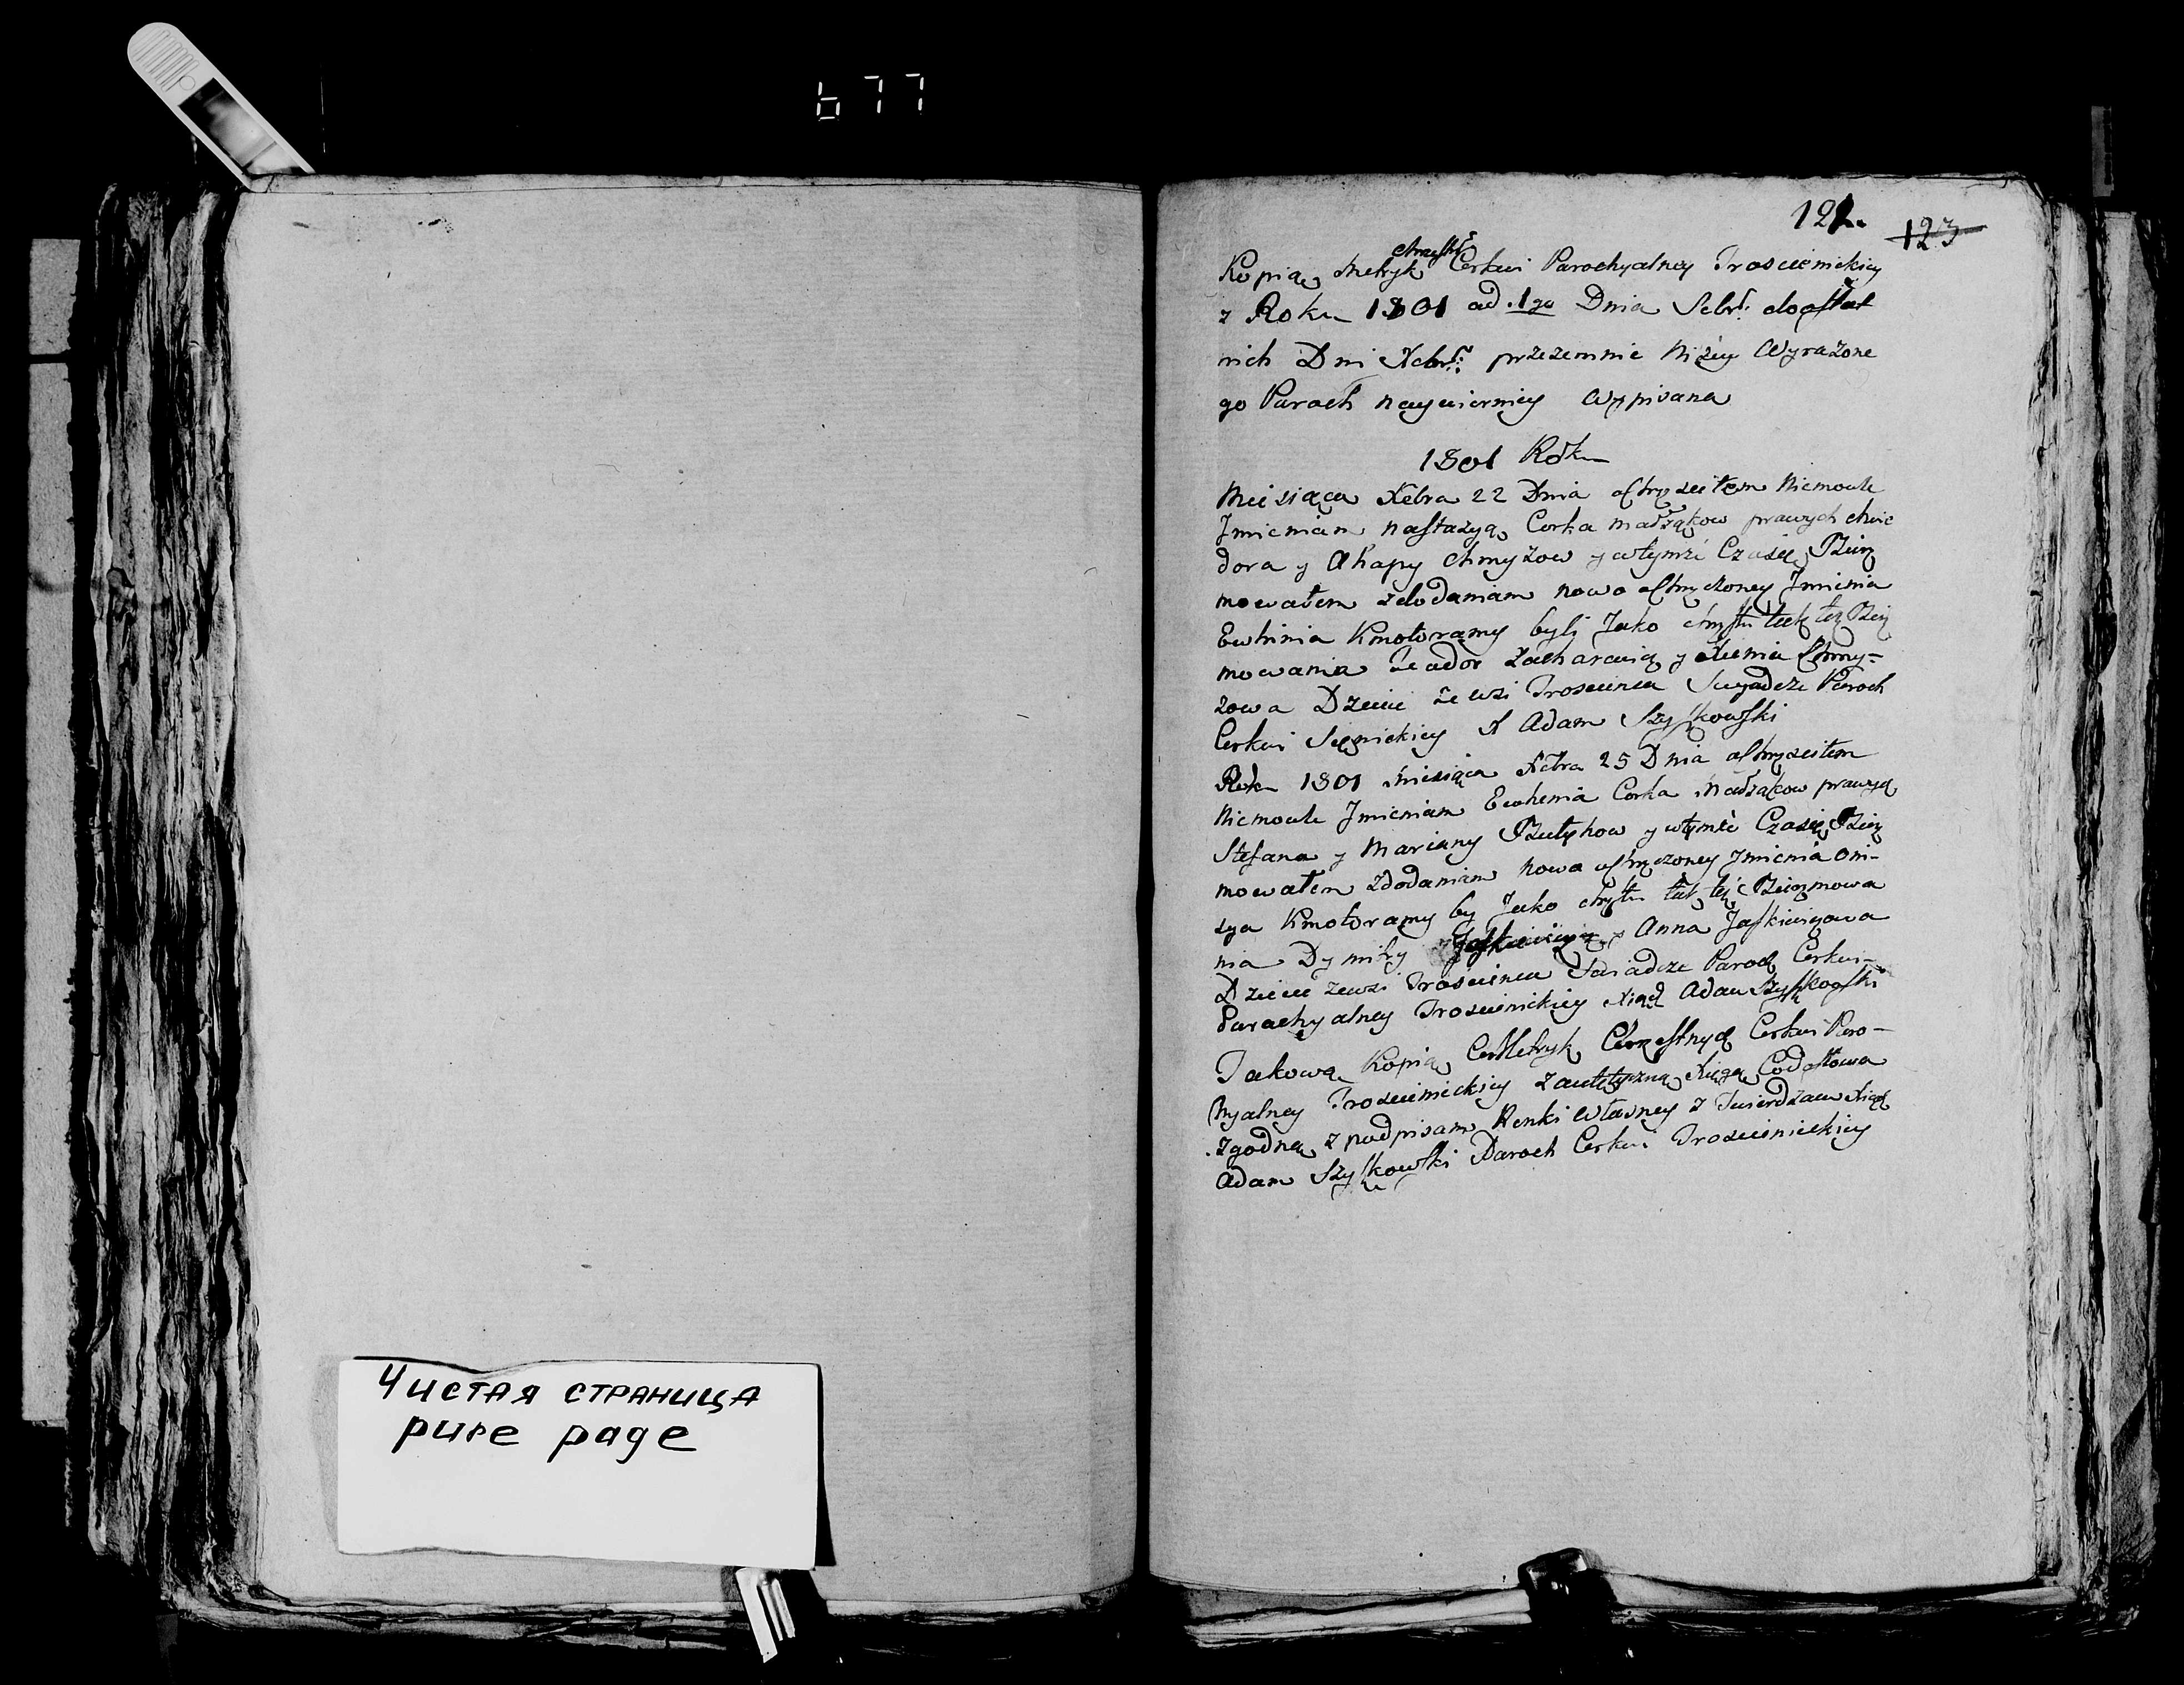 677
122. 123
chrzestn
Kopia Metryk Cerkwi Parochyalney Troscienickiey
z Roku 1801 od 1go Dnia 7ebr: do ostat
nich Dni Xebr: przezemnie Niżey Wyrażone
go Paroch naywierniey Wypisana
1801 Roku
Miesiąca Xebra 22 Dnia ochrzciłem Niemowle
Jmieniem Nastazya Corka małżąkow prawych
dora y Ahapy Chmyzow y wtymże Czasie Bierz
mowałem zdodaniem nowo ochrzczoney Jmienia
Ewhinia Kmotoramy byli Jako chrztu tak też Bierz
mowania Teador y Chmy=
zowa Dzieie ze wsi Troscienca Swiadcze Paroch
Cerkwi X Adam Szyszkowski
Roku 1801 miesiąca Xebra 25 Dnia ochrzciłem
Niemowle Jmieniem Ewhenia Corka Małżąkow prawych
Stefana y Mariany y wtymże Czasie Bierz
mowałem zdodaniem nowo ochrzczoney Jmienia Oni-
sya Kmotoramy by Jako chrztu tak też Bierzmowa
nia Dymitry Anna Jaskiewiczowa
Dzieie zewsi Troscienca Swiadcze Paroch Cerkwi
Parachyalney Troscienickiey Xiądz Adam Szyszkoski
Takową Kopią Metryk Chrzestnych Cerkwi Paro-
hyalney Troscienickiey z autetyczną Xięgą Codosłowa
Zgodną z podpisam Renki Własney z Twierdzam Xiądz
Adam Szyszkowski Paroch Cerkwi Troscienickiey
Чистая страница
pure page